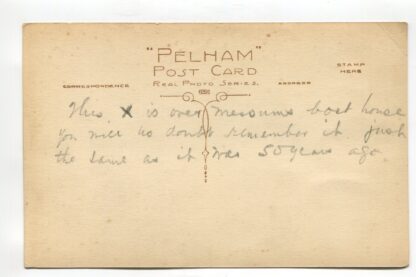 "PELHAM"
POST CARD
REAL PHOTO SERIES.
CORRESPONDENCE
ADDRESS
STAMP
HERE
This X is over Messums boat house
you will no doubt remember it just
the same as it was 50 years ago.